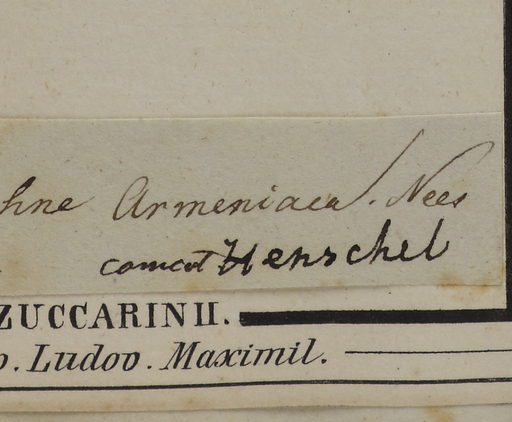 hne Armeniaca. Nees
comcot Henschel
ZUCCARINII.
o. Ludov. Maximil.